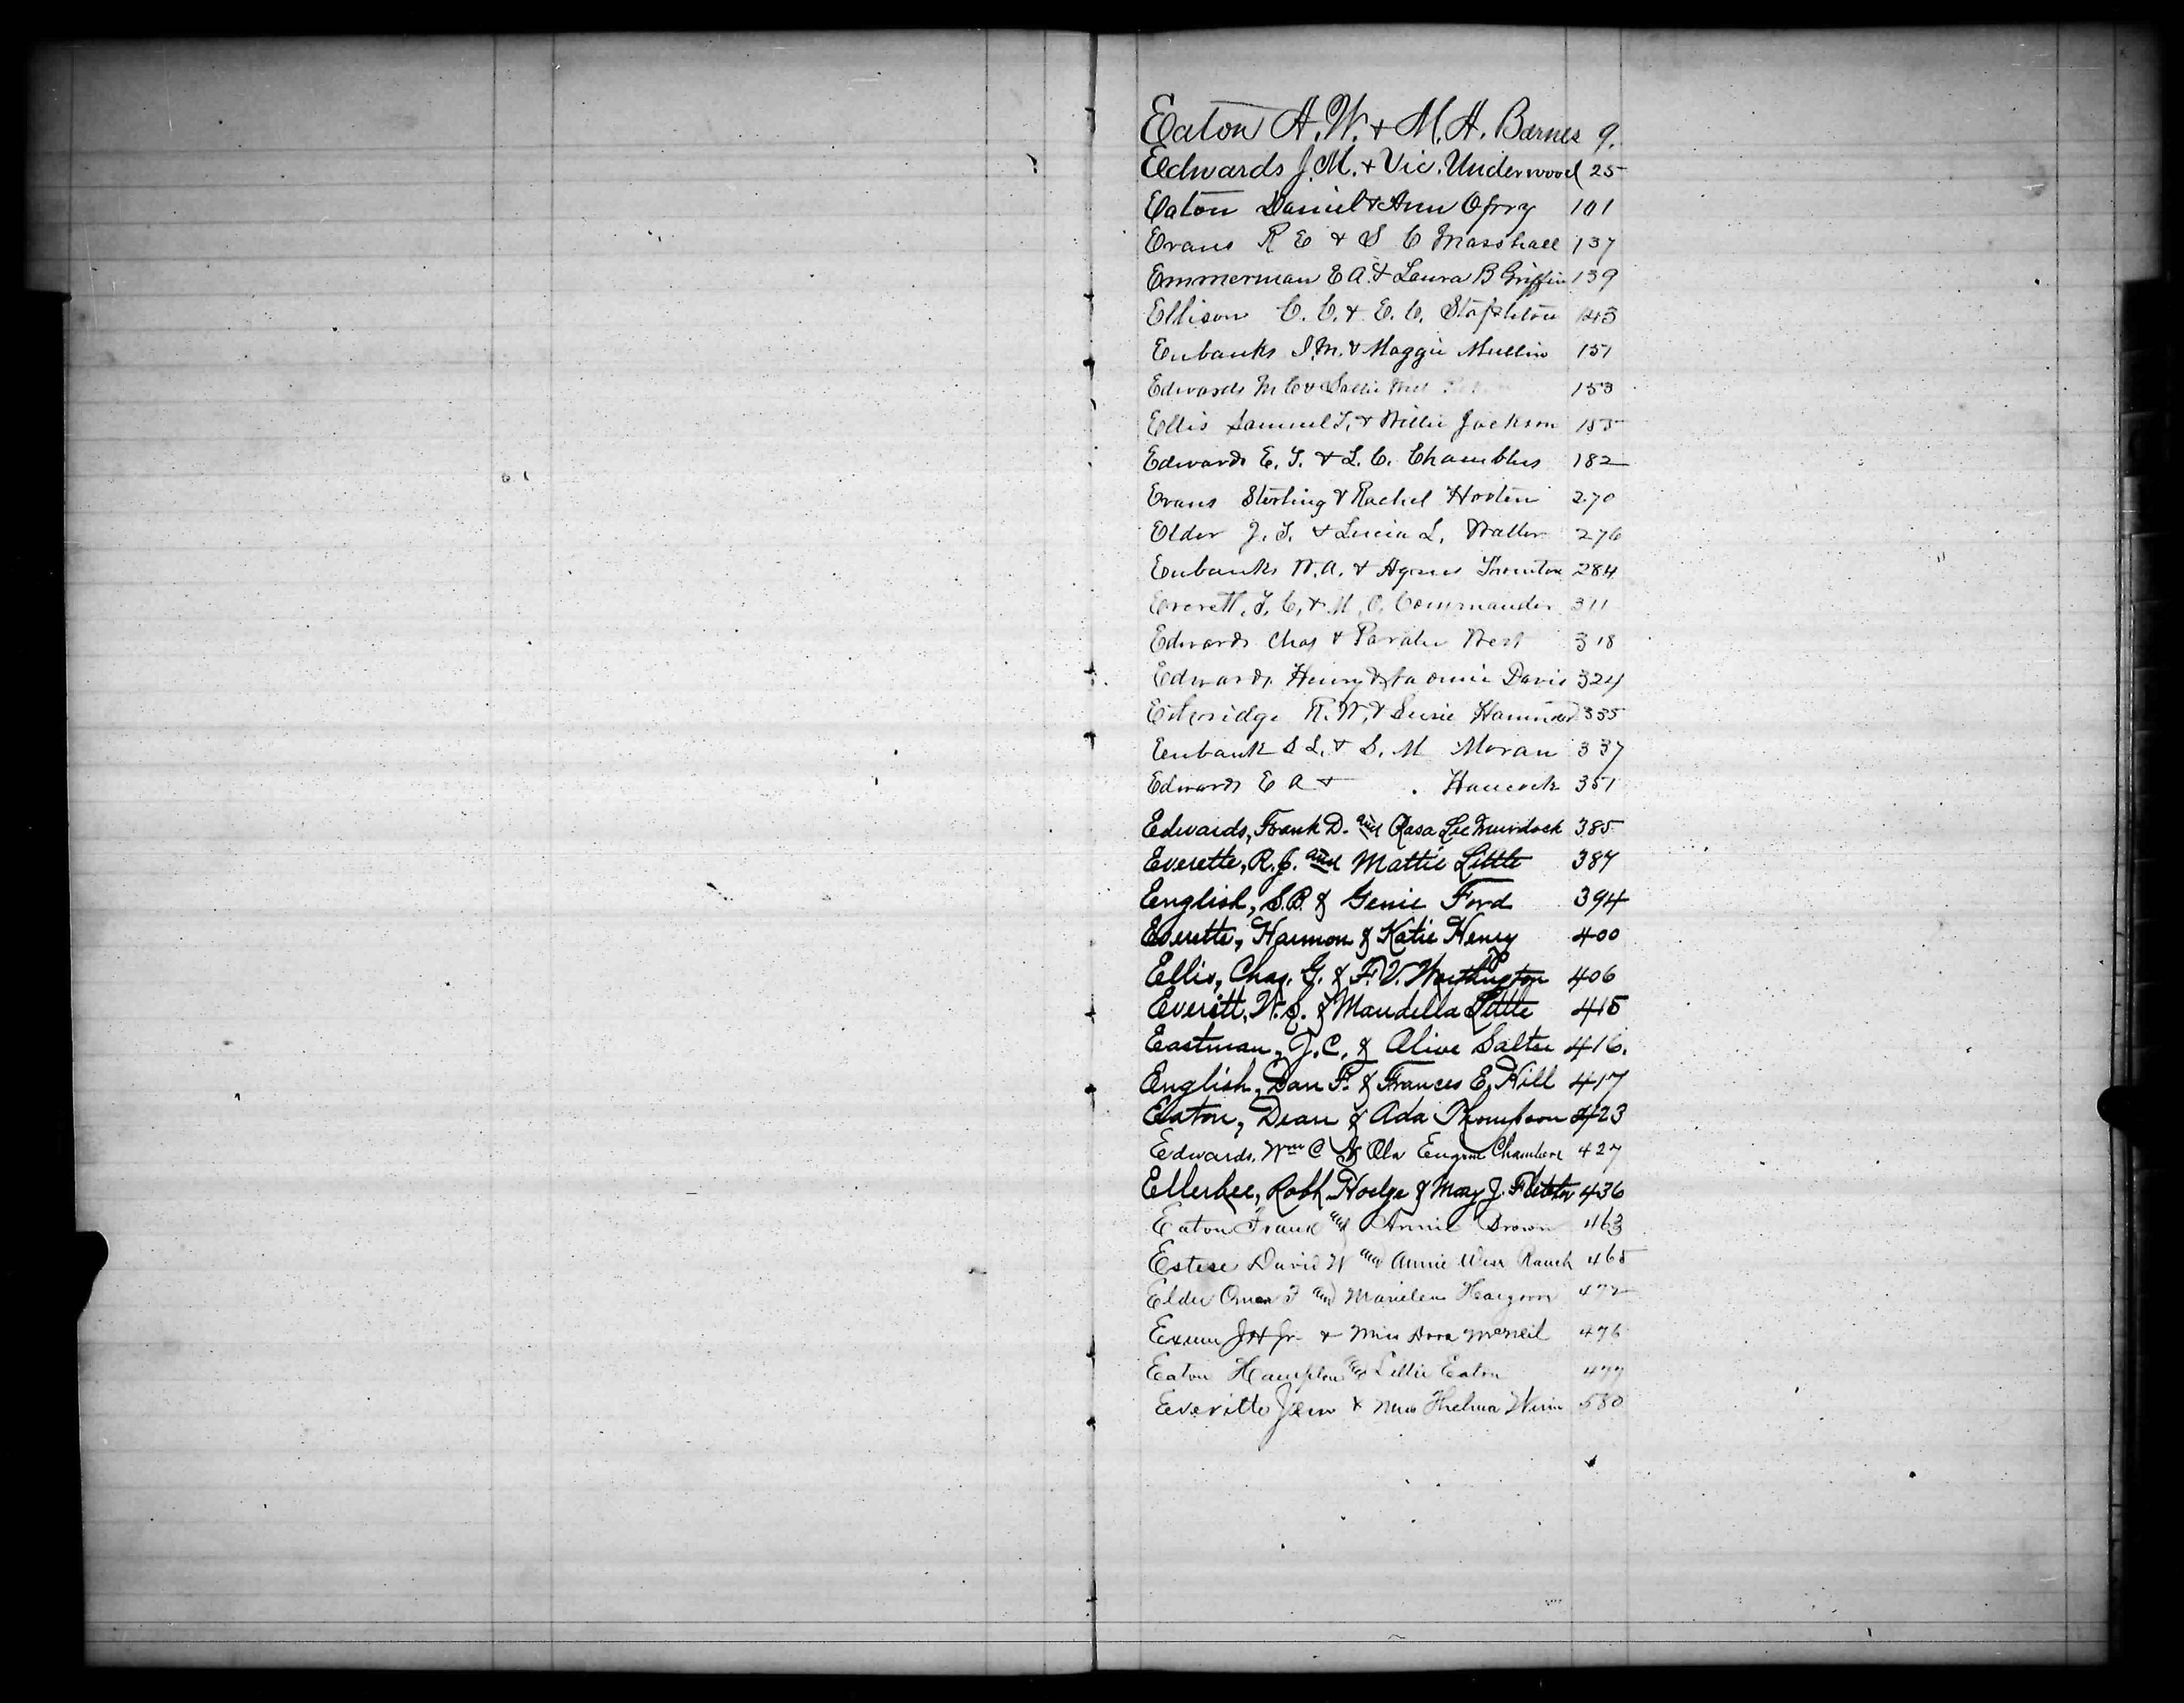 Eaton A. W. + M. A. Barnes 9.
Edwards J. M. + Vic. Underwood 25
Eaton Daniel + Ann 101
Evans R E + S C Marshall 137
Emmerman E A. + Laura B Griffin 139
Ellison C. C. + E. C. Stapleton 143
Eubanks I. M. + Maggie Mullin 151
Edwards M C + Sallie 153
Ellis Samuel T. + Willie Jackson 155
Edwards E. T. + L. C. Chambliss 182
Evans Sterling + Rachel Hooten 270
Elder J. T. + Lucia L. Waller 276
Eubanks W. A. + Agnes 284
Everett, T. C. + M. O. Commander 311
Edwards Chas + West 318
Edwards Henry + Davis 324
Etheridge R. W. + Susie 335
Eubank S L. + S. M Moran 337
Edwards E A + Hancock 351
Edwards, Frank D. and Rosa Lee Murdock 385
Everette, R. J. and Mattie Little 387
English, S. B. & Genie Ford 394
Everette, Harmon & Katie Henry 400
Ellis, Chas. G. & F. V. Worthington 406
Everitt, W. S. & Mandella Little 415
Eastman, J. C. & Olive Salter 416.
English, Dan F. & Frances E. Hill 417
Eaton, Dean & Ada Thompson 423
Edwards, Wm C & Ola Chambers 427
Ellerbee, Hodge & Mary J. 436
Eaton Frank and Annie Brown 463
Estese David W and Annie Rauch 465
Elder F and 472
Exum J H Jr. + Miss Dora McNeil 476
Eaton Hampton and Lillie Eaton 477
Everitte + Miss Thelma 580